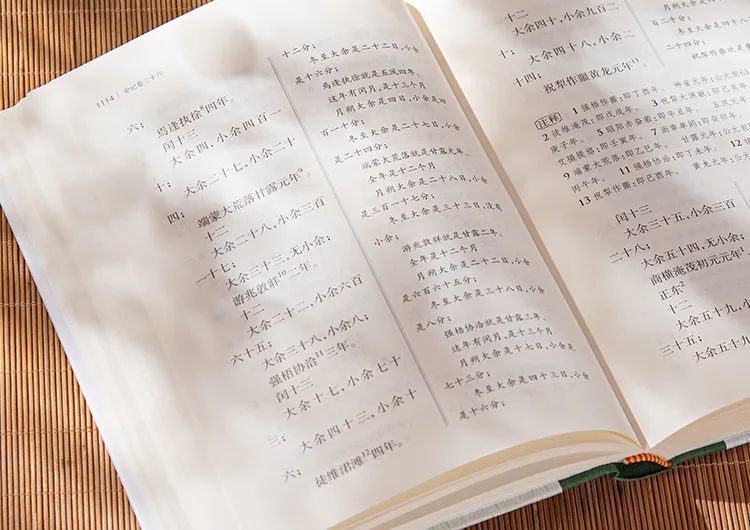 1114 | 史记卷二十六
六；
焉逢执徐⁸四年。
闰十三
大余四，小余四百一
十；
大余二十七，小余二十
四；
端蒙大荒落甘露元年⁹。
十二
大余二十八，小余三百
一十七；
大余三十三，无小余；
游兆敦牂¹⁰二年。
十二
大余二十二，小余六百
六十五；
大余三十八，小余八；
强梧协洽¹¹三年。
闰十三
大余十七，小余七十
三；
大余四十三，小余十
六；
徒维涒滩¹²四年。
十二分；
冬至大余是二十二日，小余
是十六分；
焉逢执徐就是五凤四年。
这年有闰月，是十三个月
月朔大余是四日，小余是四
百一十分；
冬至大余是二十七日，小余
是二十四分；
端蒙大荒落就是甘露元年。
全年是十二个月
月朔大余是二十八日，小余
是三百一十七分；
冬至大余是三十三日，没有
小余；
游兆敦牂就是甘露二年。
全年是十二个月
月朔大余是二十二日，小余
是六百六十五分；
冬至大余是三十八日，小余
是八分；
强梧协洽就是甘露三年。
这年有闰月，是十三个月
月朔大余是十七日，小余是
七十三分；
冬至大余是四十三日，小余
是十六分；
十二
大余四十，小余九百二
十；
大余四十八，小余二
十四；
祝犁作噩黄龙元年¹³。
百二十分；
二十四分；
注释 1 强梧作噩：即丁酉年。 神爵元年：公元前
2 徒维淹茂：即戊戌年。 3 祝犁大渊献：即己亥年
庚子年。 5 昭阳赤奋若：即辛丑年。 五凤元年
文摄提格：即壬寅年。 7 尚章单阏：即癸卯年。
9 端蒙大荒落：即乙巳年。 甘露元年：公元
丙午年。 11 强梧协洽：即丁未年。 12
13 祝犁作噩：即己酉年。 黄龙元年：公元
闰十三
大余三十五，小余三百
二十八；
大余五十四，无小余；
商横淹茂初元元年¹。
正东²
十二
大余五十九，小
三十五；
大余五十九